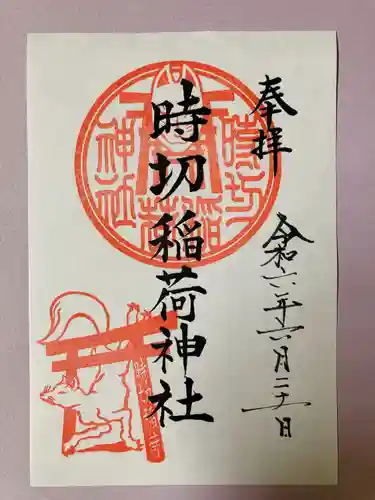 奉拝
時切稲荷神社
令和六年六月二十一日
時切
稲荷
神社